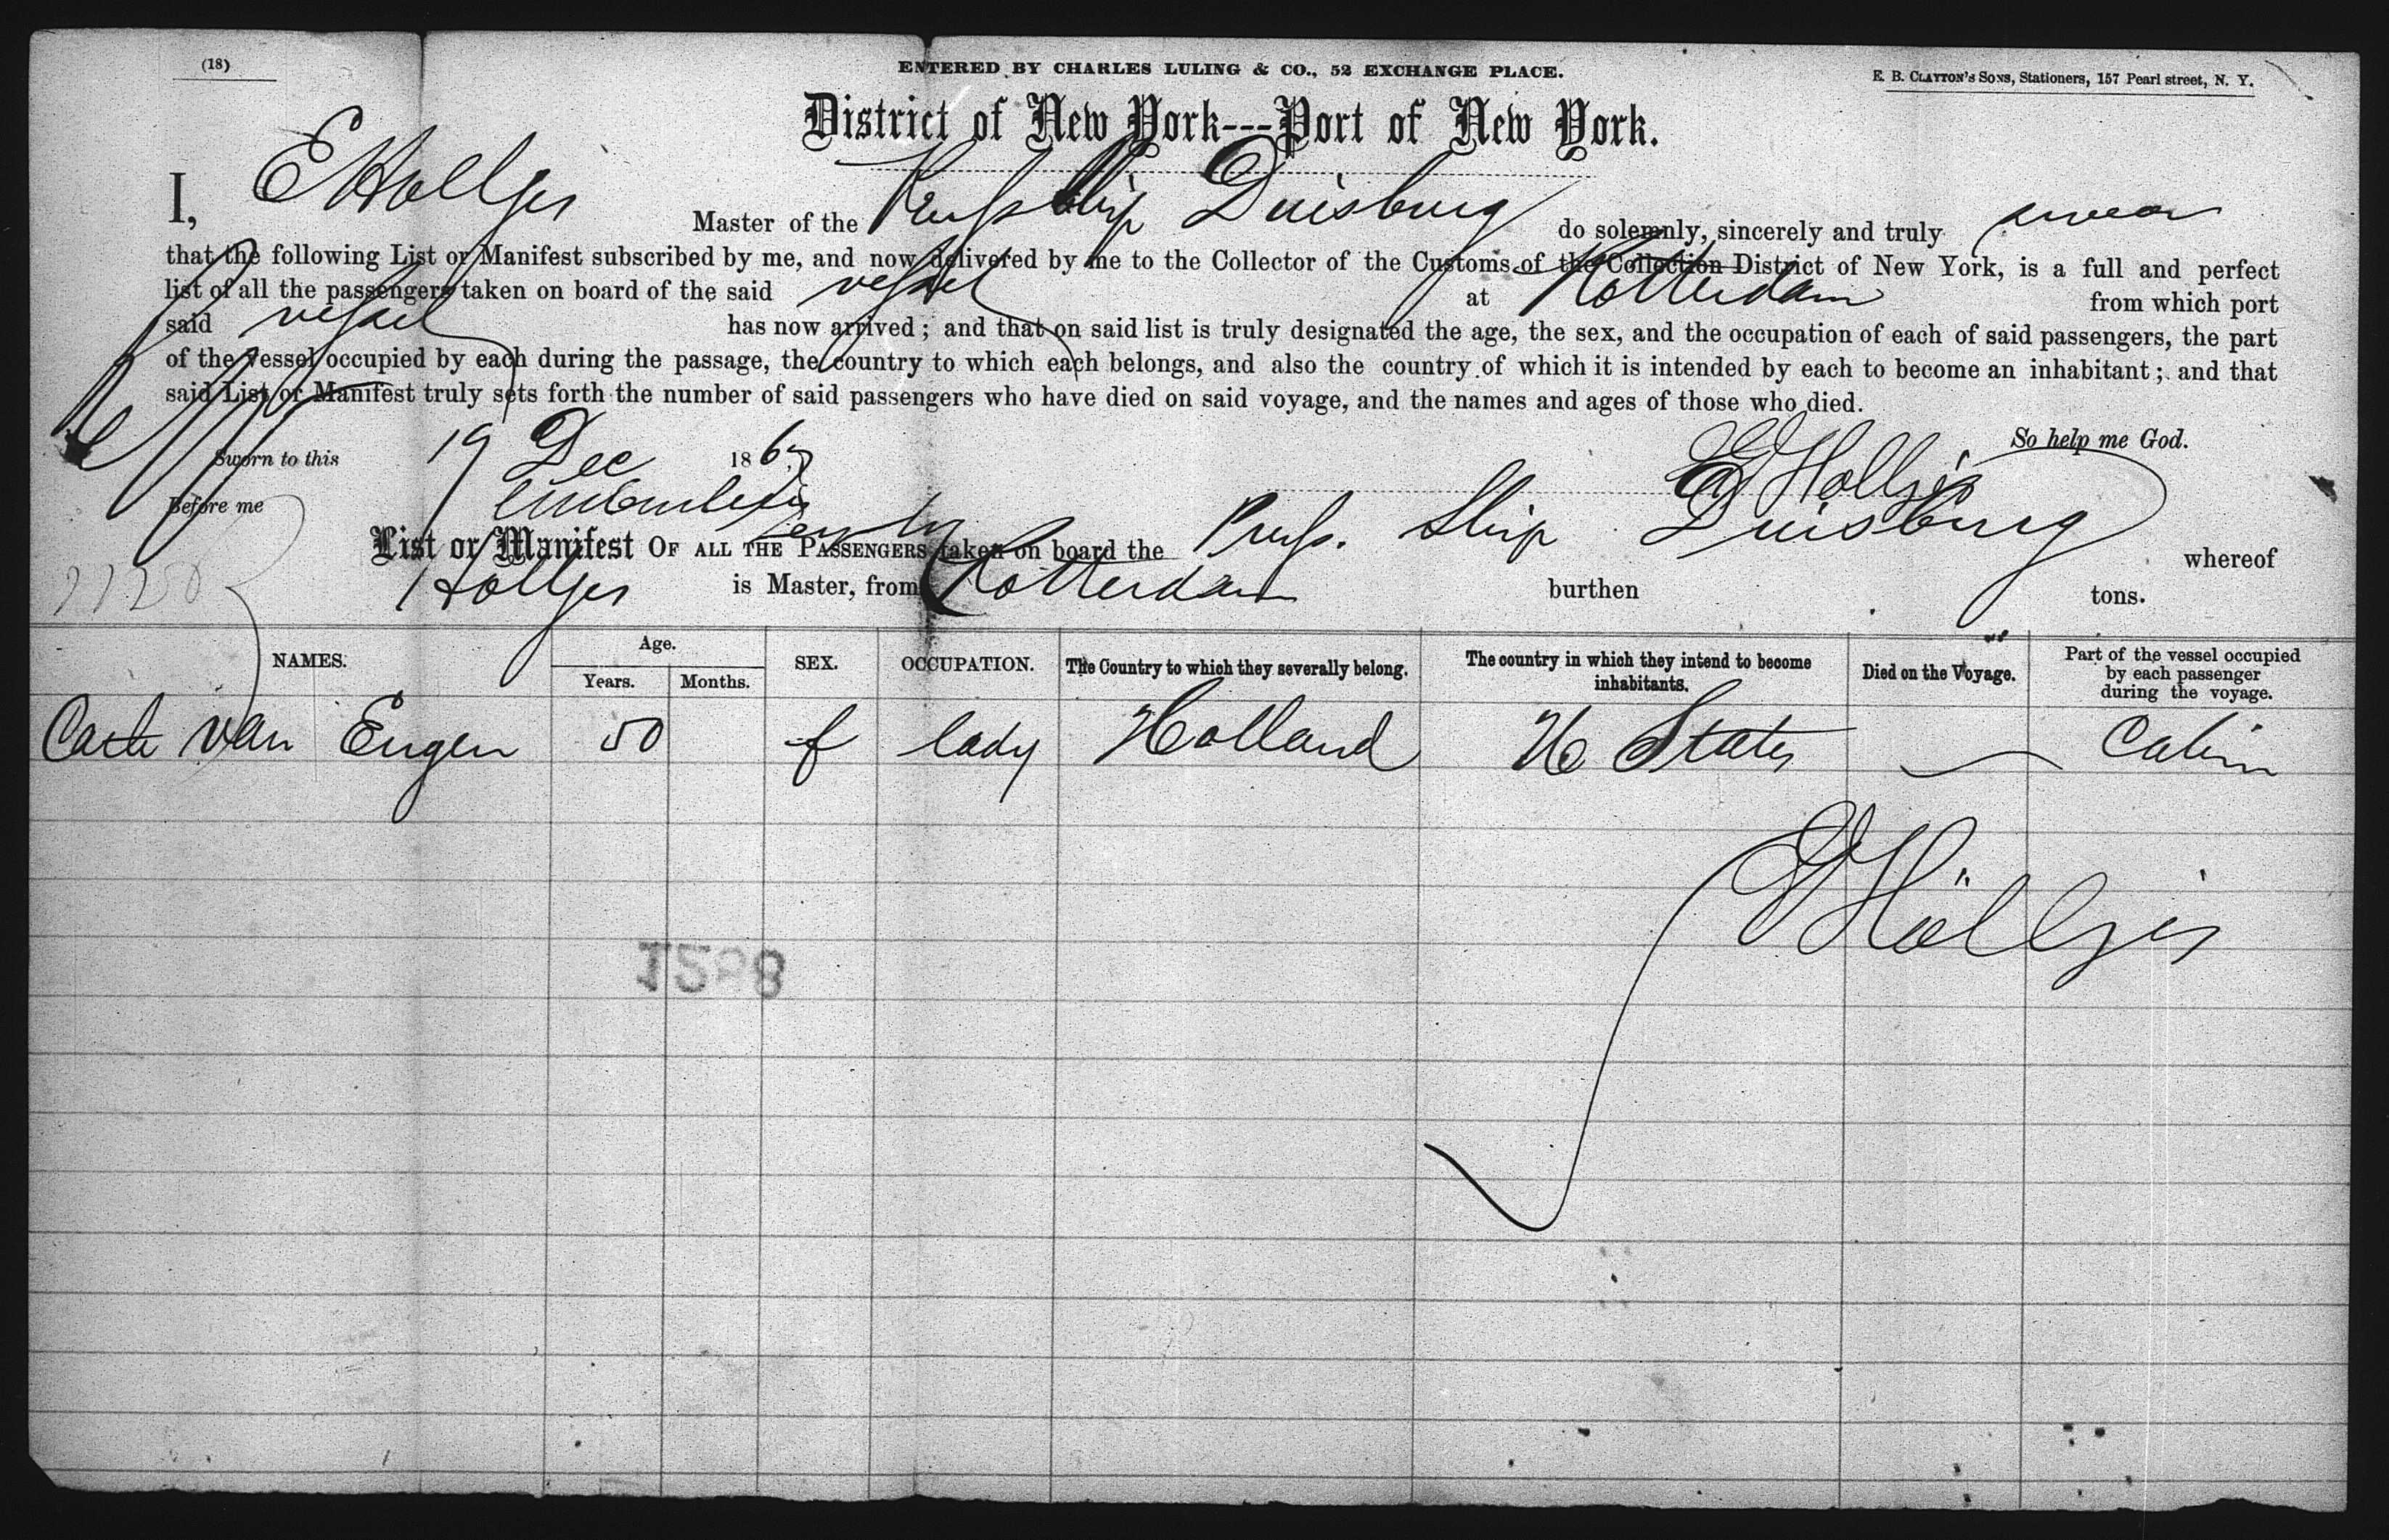 (18)
ENTERED BY CHARLES LULING & CO., 52 EXCHANGE PLACE.
E. B. CLAYTON'S SONS, Stationers, 157 Pearl street, N. Y.
District of New York---Port of New York.
I, E Holljes Master of the Prufs Ship Duisburg do solemnly, sincerely and truly swear
that the following List or Manifest subscribed by me, and now delivered by me to the Collector of the Customs of the Collection District of New York, is a full and perfect
list of all the passengers taken on board of the said vessel at Rotterdam from which port
said vessel has now arrived; and that on said list is truly designated the age, the sex, and the occupation of each of said passengers, the part
of the vessel occupied by each during the passage, the country to which each belongs, and also the country of which it is intended by each to become an inhabitant; and that
said List or Manifest truly sets forth the number of said passengers who have died on said voyage, and the names and ages of those who died.
So help me God.
Sworn to this 19 Dec 1867
E Hölljes
Before me
List or Manifest OF ALL THE PASSENGERS taken on board the Prufs. Ship Duisburg whereof
Holljes is Master, from Rotterdam burthen tons.
NAMES. Age. Years. Months. SEX. OCCUPATION. The Country to which they severally belong. The country in which they intend to become inhabitants. Died on the Voyage. Part of the vessel occupied by each passenger during the voyage.
van Eugen 50 f lady Holland U States Cabin
E Hölljes